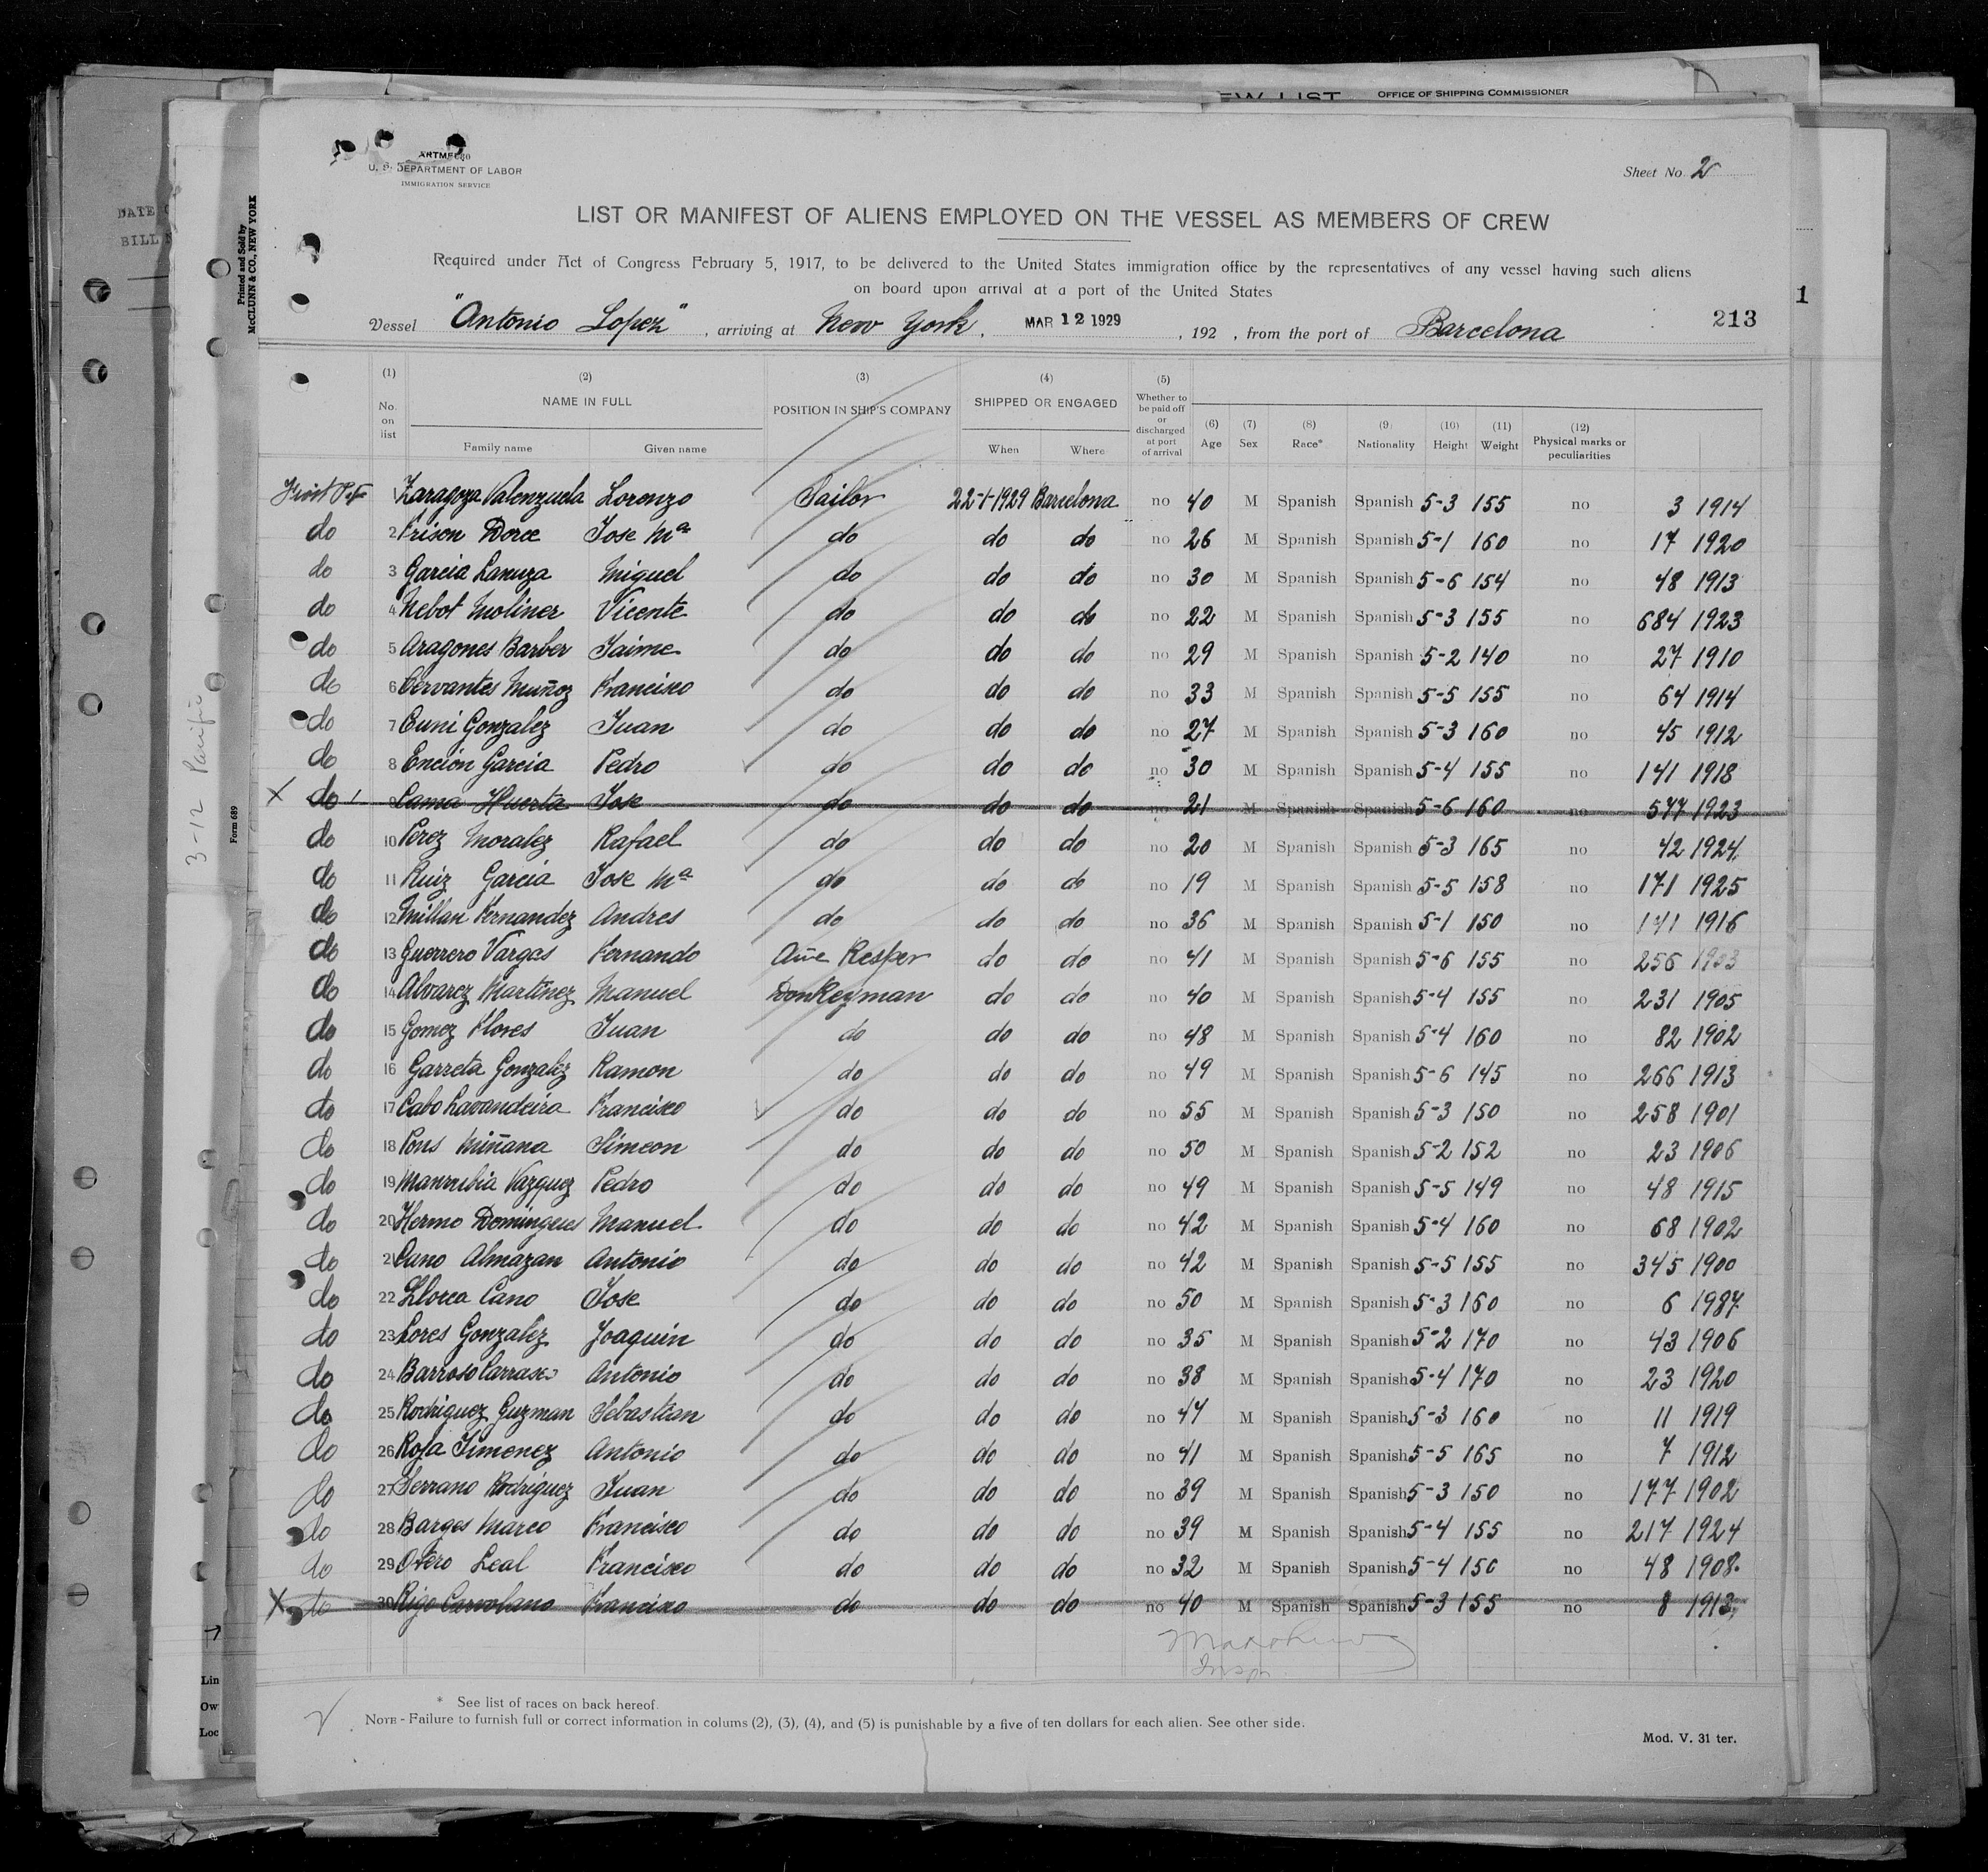 EW LIST OFFICE OF SHIPPING COMMISSIONER
U. S. DEPARTMENT OF LABOR
IMMIGRATION SERVICE
Sheet No. 2
LIST OR MANIFEST OF ALIENS EMPLOYED ON THE VESSEL AS MEMBERS OF CREW
Required under Act of Congress February 5, 1917, to be delivered to the United States immigration office by the representatives of any vessel having such aliens
on board upon arrival at a port of the United States
Vessel "Antonio Lopez", arriving at New York, MAR 12 1929, 192 , from the port of Barcelona 213
1
DATE
BILL
Printed and Sold by
McCLUNN & CO., NEW YORK
Form 689
3-12 Pacific
(1) No. on list
(2) NAME IN FULL Family name Given name
(3) POSITION IN SHIP'S COMPANY
(4) SHIPPED OR ENGAGED When Where
(5) Whether to be paid off or discharged at port of arrival
(6) Age (7) Sex (8) Race* (9) Nationality (10) Height (11) Weight (12) Physical marks or peculiarities
1 Zaragoza Valenzuela Lorenzo Sailor 22-1-1929 Barcelona no 40 M Spanish Spanish 5-3 155 no 3 1914
do 2 Frison Dorce Jose Mª do do do no 26 M Spanish Spanish 5-1 160 no 17 1920
do 3 Garcia Lanuza Miguel do do do no 30 M Spanish Spanish 5-6 154 no 48 1913
do 4 Nebot Moliner Vicente do do do no 22 M Spanish Spanish 5-3 155 no 684 1923
do 5 Aragones Barber Jaime do do do no 29 M Spanish Spanish 5-2 140 no 27 1910
do 6 Cervantes Muñoz Francisco do do do no 33 M Spanish Spanish 5-5 155 no 64 1914
do 7 Cuni Gonzalez Juan do do do no 27 M Spanish Spanish 5-3 160 no 45 1912
do 8 Encion Garcia Pedro do do do no 30 M Spanish Spanish 5-4 155 no 141 1918
X do 9 Cama Huerta Jose do do do no 21 M Spanish Spanish 5-6 160 no 577 1923
do 10 Perez Moralez Rafael do do do no 20 M Spanish Spanish 5-3 165 no 42 1924
do 11 Ruiz Garcia Jose Mª do do do no 19 M Spanish Spanish 5-5 158 no 171 1925
do 12 Millan Fernandez Andres do do do no 36 M Spanish Spanish 5-1 150 no 141 1916
do 13 Guerrero Vargas Fernando Kesper do do no 41 M Spanish Spanish 5-6 155 no 256
do 14 Alvarez Martinez Manuel Donkeyman do do no 40 M Spanish Spanish 5-4 155 no 231 1905
do 15 Gomez Flores Juan do do do no 48 M Spanish Spanish 5-4 160 no 82 1902
do 16 Garreta Gonzalez Ramon do do do no 49 M Spanish Spanish 5-6 145 no 266 1913
do 17 Cabo Lavandeira Francisco do do do no 55 M Spanish Spanish 5-3 150 no 258 1901
do 18 Pons Miñana Simeon do do do no 50 M Spanish Spanish 5-2 152 no 23 1906
do 19 Manrubia Vazquez Pedro do do do no 49 M Spanish Spanish 5-5 149 no 48 1915
do 20 Hermo Domingues Manuel do do do no 42 M Spanish Spanish 5-4 160 no 68 1902
do 21 Cano Almazan Antonio do do do no 42 M Spanish Spanish 5-5 155 no 345 1900
do 22 Llorca Cano Jose do do do no 50 M Spanish Spanish 5-3 160 no 6 1987
do 23 Lores Gonzalez Joaquin do do do no 35 M Spanish Spanish 5-2 170 no 43 1906
do 24 Barroso Carrasco Antonio do do do no 38 M Spanish Spanish 5-4 170 no 23 1920
do 25 Rodriguez Guzman Sebastian do do do no 47 M Spanish Spanish 5-3 160 no 11 1919
do 26 Roja Jimenez Antonio do do do no 41 M Spanish Spanish 5-5 165 no 7 1912
do 27 Serrano Rodriguez Juan do do do no 39 M Spanish Spanish 5-3 150 no 177 1902
do 28 Barges Marco Francisco do do do no 39 M Spanish Spanish 5-4 155 no 217 1924
do 29 Otero Leal Francisco do do do no 32 M Spanish Spanish 5-4 150 no 48 1908
X do 30 Rigo Francisco do do do no 40 M Spanish Spanish 5-3 155 no 8 1913
Insp
Lin
Ow
Loc
* See list of races on back hereof.
NOTE - Failure to furnish full or correct information in colums (2), (3), (4), and (5) is punishable by a five of ten dollars for each alien. See other side.
Mod. V. 31 ter.